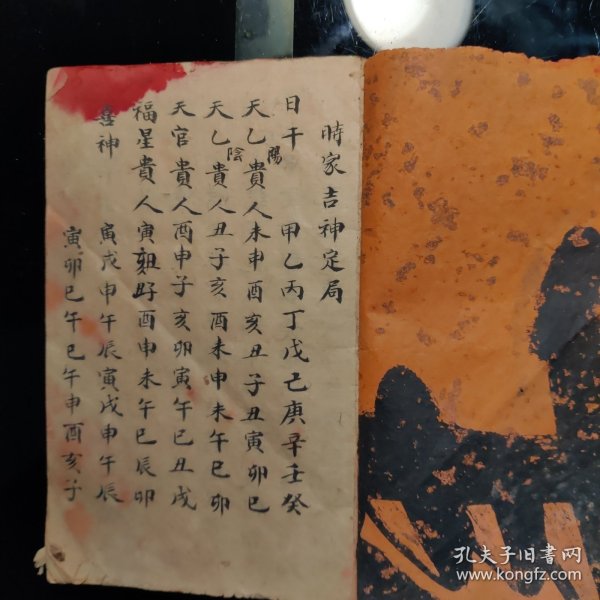 時家吉神定局
日干 甲乙丙丁戊己庚辛壬癸
天乙陽貴人未申酉亥丑子丑寅卯巳
天乙陰貴人丑子亥酉未申未午巳卯
天官貴人酉申子亥卯寅午巳丑戌
福星貴人寅 酉申未午巳辰卯
喜神 寅戌申午辰寅戌申午辰
寅卯巳午巳午申酉亥子
孔夫子旧书网
www.kongfz.com